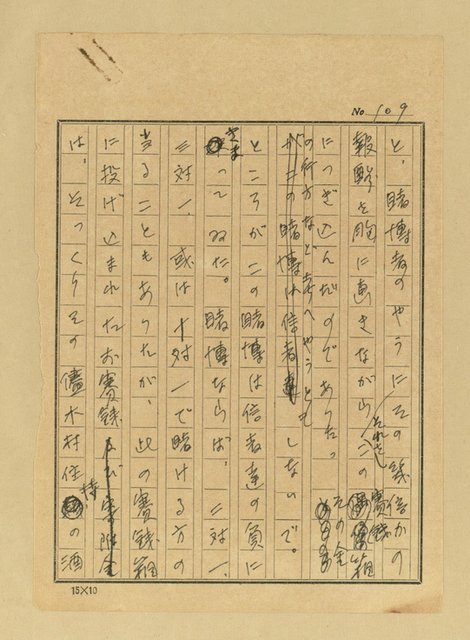 No. 109
と、賭博者のやうにその幾倍かの
報酬を胸に画きながら、それぞれこの賽銭箱
につぎ込んだのであつた。その金
の行方など考へやうともしないで。
ところがこの賭博は信者達の負に
きまつてゐた。賭博ならば、二対一、
三対一、或は十対一で賭ける方の
当ることもありたが、此の賽銭箱
に投げ込まれたお賽銭
は、そつくりその儘木村住持の酒
15×10